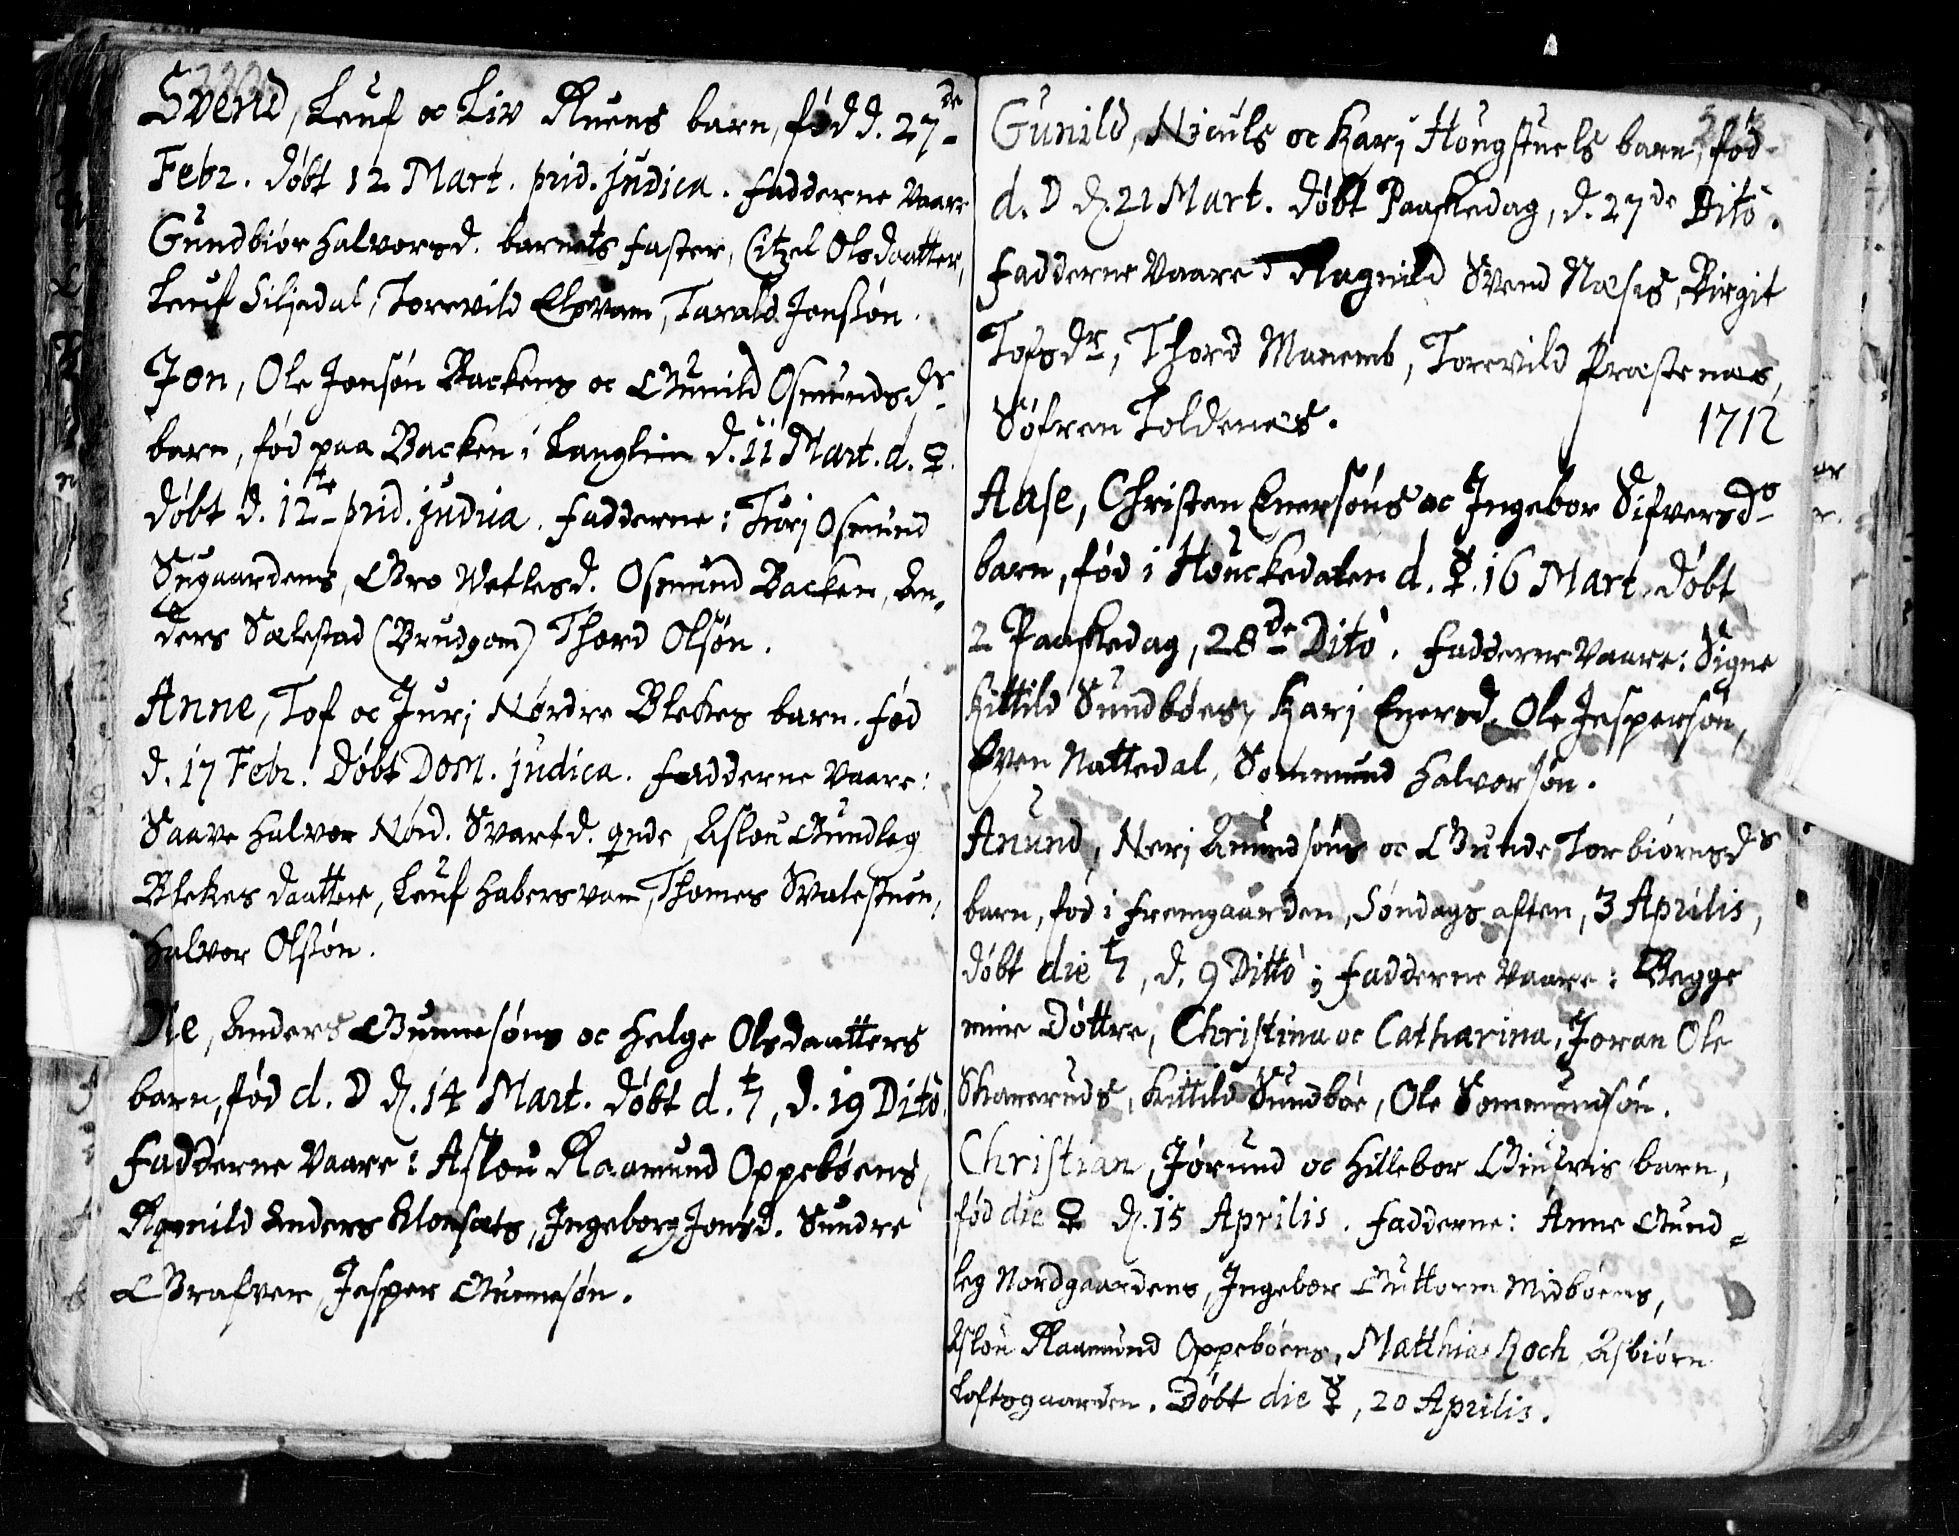 Svend, Leuf oc Liv Ruens barn, fød d. 27de
Febr. døbt 12 Mart. prid. judica. Fadderne vaare
Gundbiør Halvorsd. barnets faster, Citzel Olsdaatter,
Leuf Siljedal, Torevild Elsvam, Tarald Jonssøn.
Jon, Ole Jonsøn Backens oc Gunild Osmundsdr
barn, fød paa Backen i Langliim d. 11 Mart. d. ♀.
døbt d. 12te prid. judica. Fadderne: Turj Osmund
Sugaardens, Gro Wetlesd. Osmund Backen, An-
ders Sælestad (Brudgom) Thord Olsøn.
Anne, Tof oc Jurj Nørdre Blekes barn. fød
d. 17 Febr. døbt Dom. judica. Fadderne vaare:
Saave Halvor Nord. Svartd. qnde, Aslou Gundleg
Blekes daatter, Leuf Habersvam, Thomes Svalestuen,
Halvor Olssøn.
Ole, Anders Gunnesøns oc Helge Olsdaatters
barn, fød d. D d. 14 Mart. døbt d. ♄, d. 19 Dito.
Fadderne vaare: Aslou Raamund Oppebøens,
Ragnild Anders Klonsæts, Ingeborg Jonsd. Sundre
Grafver, Jesper Gunnesøn.
Gunild, Niculs oc Karj Hougstuels barn, fød
d. D d. 21 Mart. døbt Paaskedag, d. 27de Dito.
Fadderne vaare: Ragnild Svend Næses, Birgit
Tofsdr, Thord Manemb, Torevild Præstenæs,
Søfren Toldenæs. 1712
Aase, Christen Enersøns oc Ingebor Sifversd
barn, fød i Houckedalen d. ☿. 16 Mart. døbt
2 Paaskedag, 28de Dito. Fadderne vaare: Signe
Kittild Sundbøes, Karj Enersd. Ole Jespersøn,
Even Nattedal, Sommund Halvorsøn.
Anund, Nerj Anundsøns oc Gunde Torbiørnsds
barn, fød i Fremgaarden, Søndags aften, 3 Aprilis,
døbt die ♄, d. 9 Ditto; Fadderne vaare: Begge
mine Døttre, Christina oc Catharina, Joran Ole
Skareruds, Kittild Sundbøe, Ole Sommundsøn.
Christian, Jørund oc Hillebor Giufvis barn,
fød die ♀ d. 15 Aprilis. Fadderne: Anne Gund-
leg Nordgaardens, Ingebor Guttorm Midbøens,
Aslou Raamund Oppebøens, Matthias Koch, Asbiørn
Loftsgaarden. Døbt die ☿, 20 Aprilis.